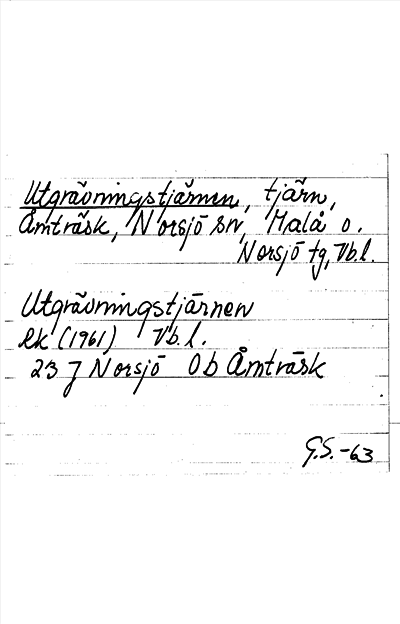 Utgrävningstjärnen, tjärn,
Åmträsk, Norsjö sn, Malå o.
Norsjö tg, Vb.l.
Utgrävningstjärnen
Ek (1961) Vb.l.
23 J Norsjö 0b Åmträsk
G.S. -63